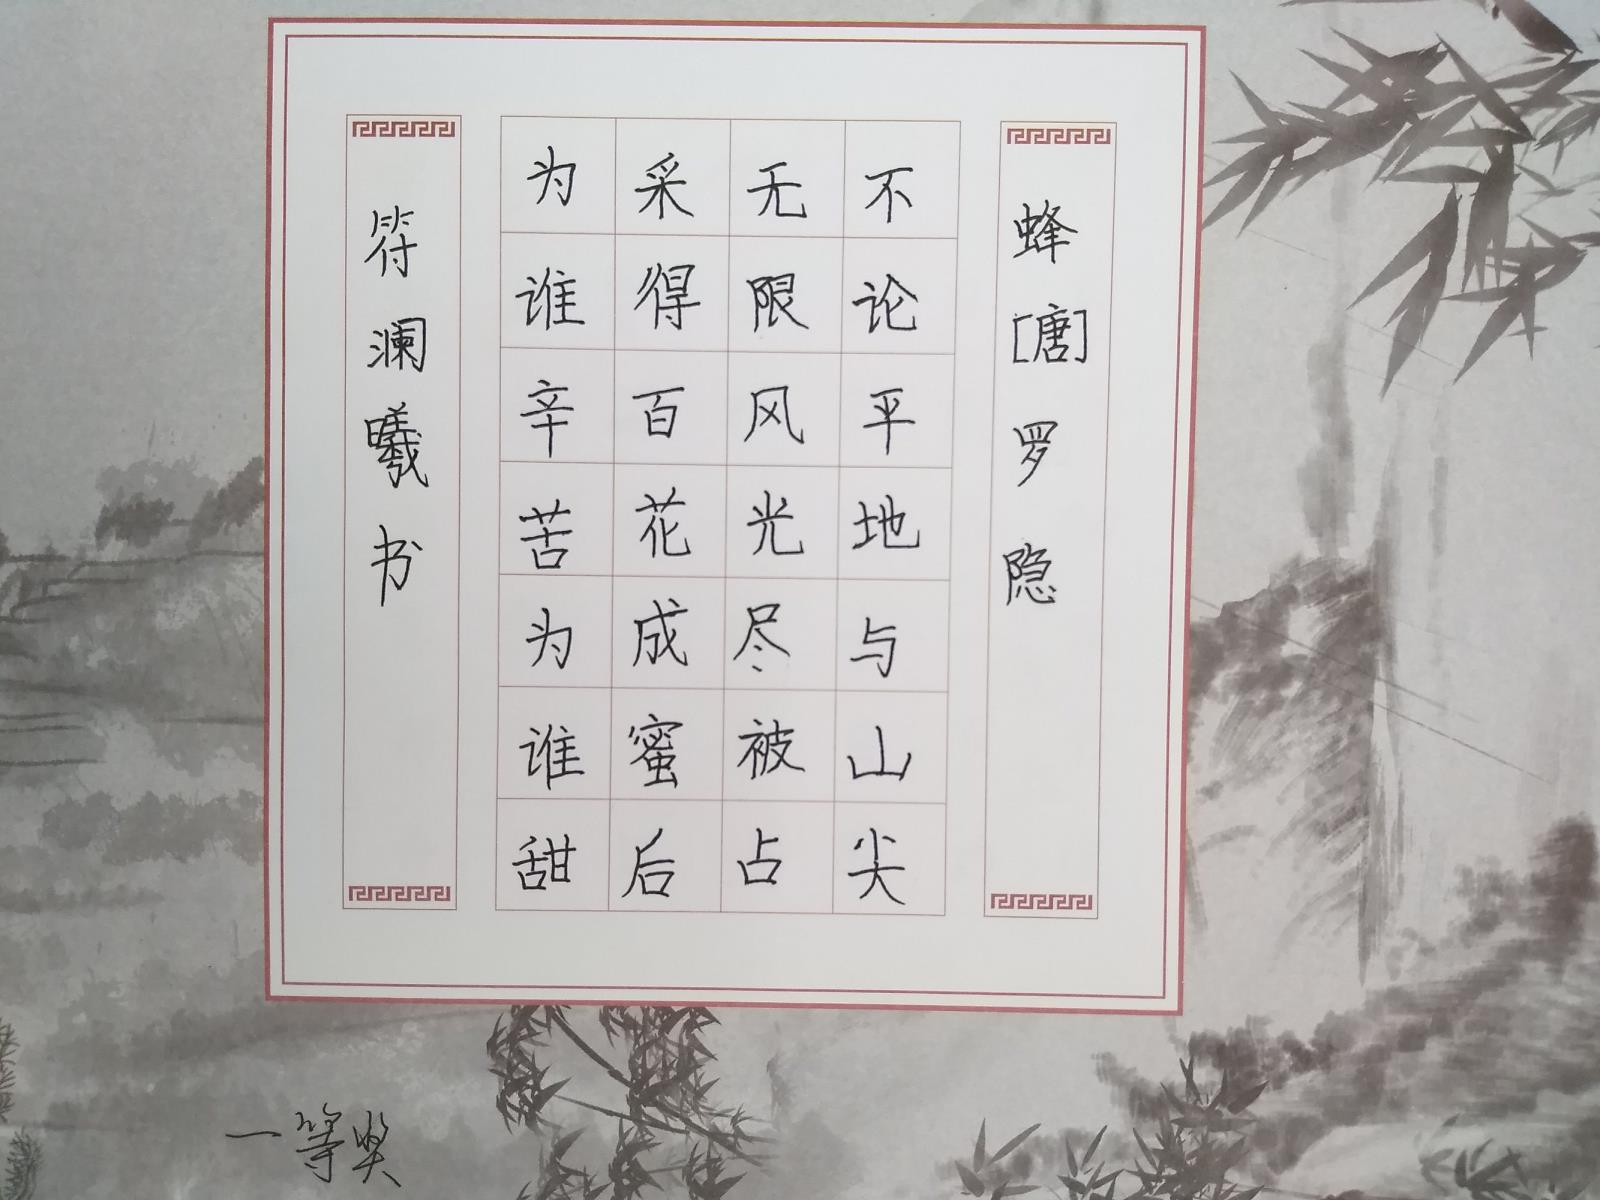 蜂[唐]罗隐
不论平地与山尖
无限风光尽被占
采得百花成蜜后
为谁辛苦为谁甜
符澜曦书
一等奖